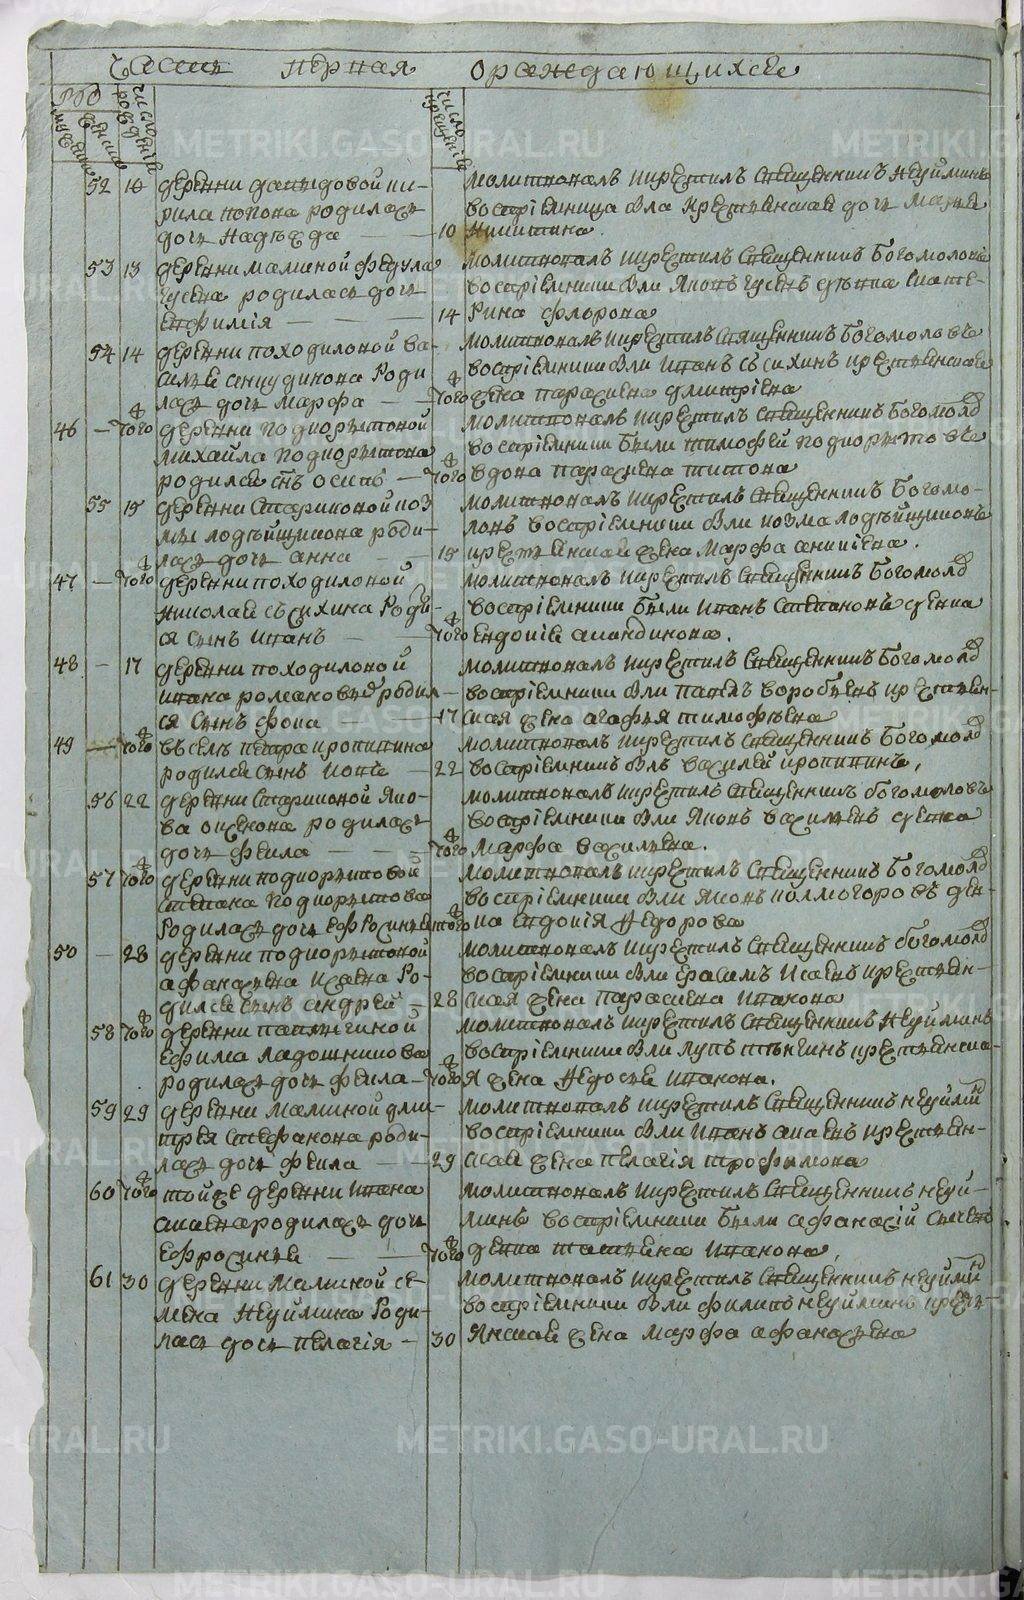 Часть первая о раждающихся
число рождений
число крещения
мужеска
женска
52 10 деревни давыдовой ки-
рила попова родилась
дочь надѣжда — 10
молитвовалъ и крестилъ священникъ неуйминъ
воспріемница была крестьянская дочь марья
никитина.
53 13 деревни малиной федула
гусева родилась дочь
евфимія — 14
молитвовалъ и крестилъ священникъ богомоловъ
воспріемники были яковъ гусевъ девка екате-
рина флорова
54 14 деревни походиловой ва-
силья роди
лась дочь марфа — того ж
молитвовалъ и крестилъ священникъ богомоловъ
воспріемники были иванъ сысихинъ крестьянская
жена парасковья дмитріева
46 — того ж деревни подкорытовой
михайла подкорытова
родился снъ осипъ — того ж
молитвовалъ и крестилъ священникъ богомолов
воспріемники были тимофей подкорытовъ
вдова парасковья титова
55 15 деревни стариковой коз
мы лодѣйщикова роди-
лась дочь анна — 15
молитвовалъ и крестилъ священникъ богомо-
ловъ воспріемники были козма лодѣйщиковъ
крестьянская жена марфа
47 — того ж деревни походиловой
николая сысихина роди
ся сынъ иванъ — того ж
молитвовалъ и крестилъ священникъ богомолов
воспріемники были иванъ степановъ девка
евдокія
48 — 17 деревни походиловой
ивана романовыхъ родил-
ся сынъ фока — 17
молитвовалъ и крестилъ священникъ богомолов
воспріемники были павелъ воробьевъ крестьян-
ская жена агафья тимофѣева
49 — того ж въ селѣ петра кропинина
родился сынъ — 22
молитвовалъ и крестилъ священникъ богомолов
воспріемникъ былъ василей кропининъ,
56 22 деревни стариковой яко-
ва родилась
дочь фекла — того ж
молитвовалъ и крестилъ священникъ богомоловъ
воспріемники были яковъ васильевъ девка
марфа васильева.
57 того ж деревни подкорытовой
степана подкорытова
родилась дочь ефросинья того ж
молитвовалъ и крестилъ священникъ богомолов
воспріемники были яковъ колмогоровъ дев-
ка евдокія федорова
50 — 28 деревни подкорытовой
афанасья исаева ро-
дился сынъ андрей — 28
молитвовалъ и крестилъ священникъ богомолов
воспріемники были герасимъ исаевъ крестьян-
ская жена парасковья иванова
58 того ж деревни
ефима ладошникова
родилась дочь фекла — того ж
молитвовалъ и крестилъ священникъ неуйминъ
воспріемники были лупъ крестьянска-
я жена федосья иванова.
59 29 деревни малиной дми-
трея стефанова роди-
лась дочь фекла — 29
молитвовалъ и крестилъ священникъ неуймин
воспріемники были иванъ крестьян-
ская жена пелагія трофимова
60 того ж той же деревни ивана
родилась дочь
ефросинья — того ж
молитвовалъ и крестилъ священникъ неуй-
минъ воспріемники были афанасій
девка татьяна иванова,
61 30 деревни малиной се-
мена неуймина роди-
лась дочь пелагія — 30
молитвовалъ и крестилъ священникъ неуймин
воспріемники были филипъ неуйминъ кресть-
янская жена марфа афанасьева
METRIKI.GASO-URAL.RU